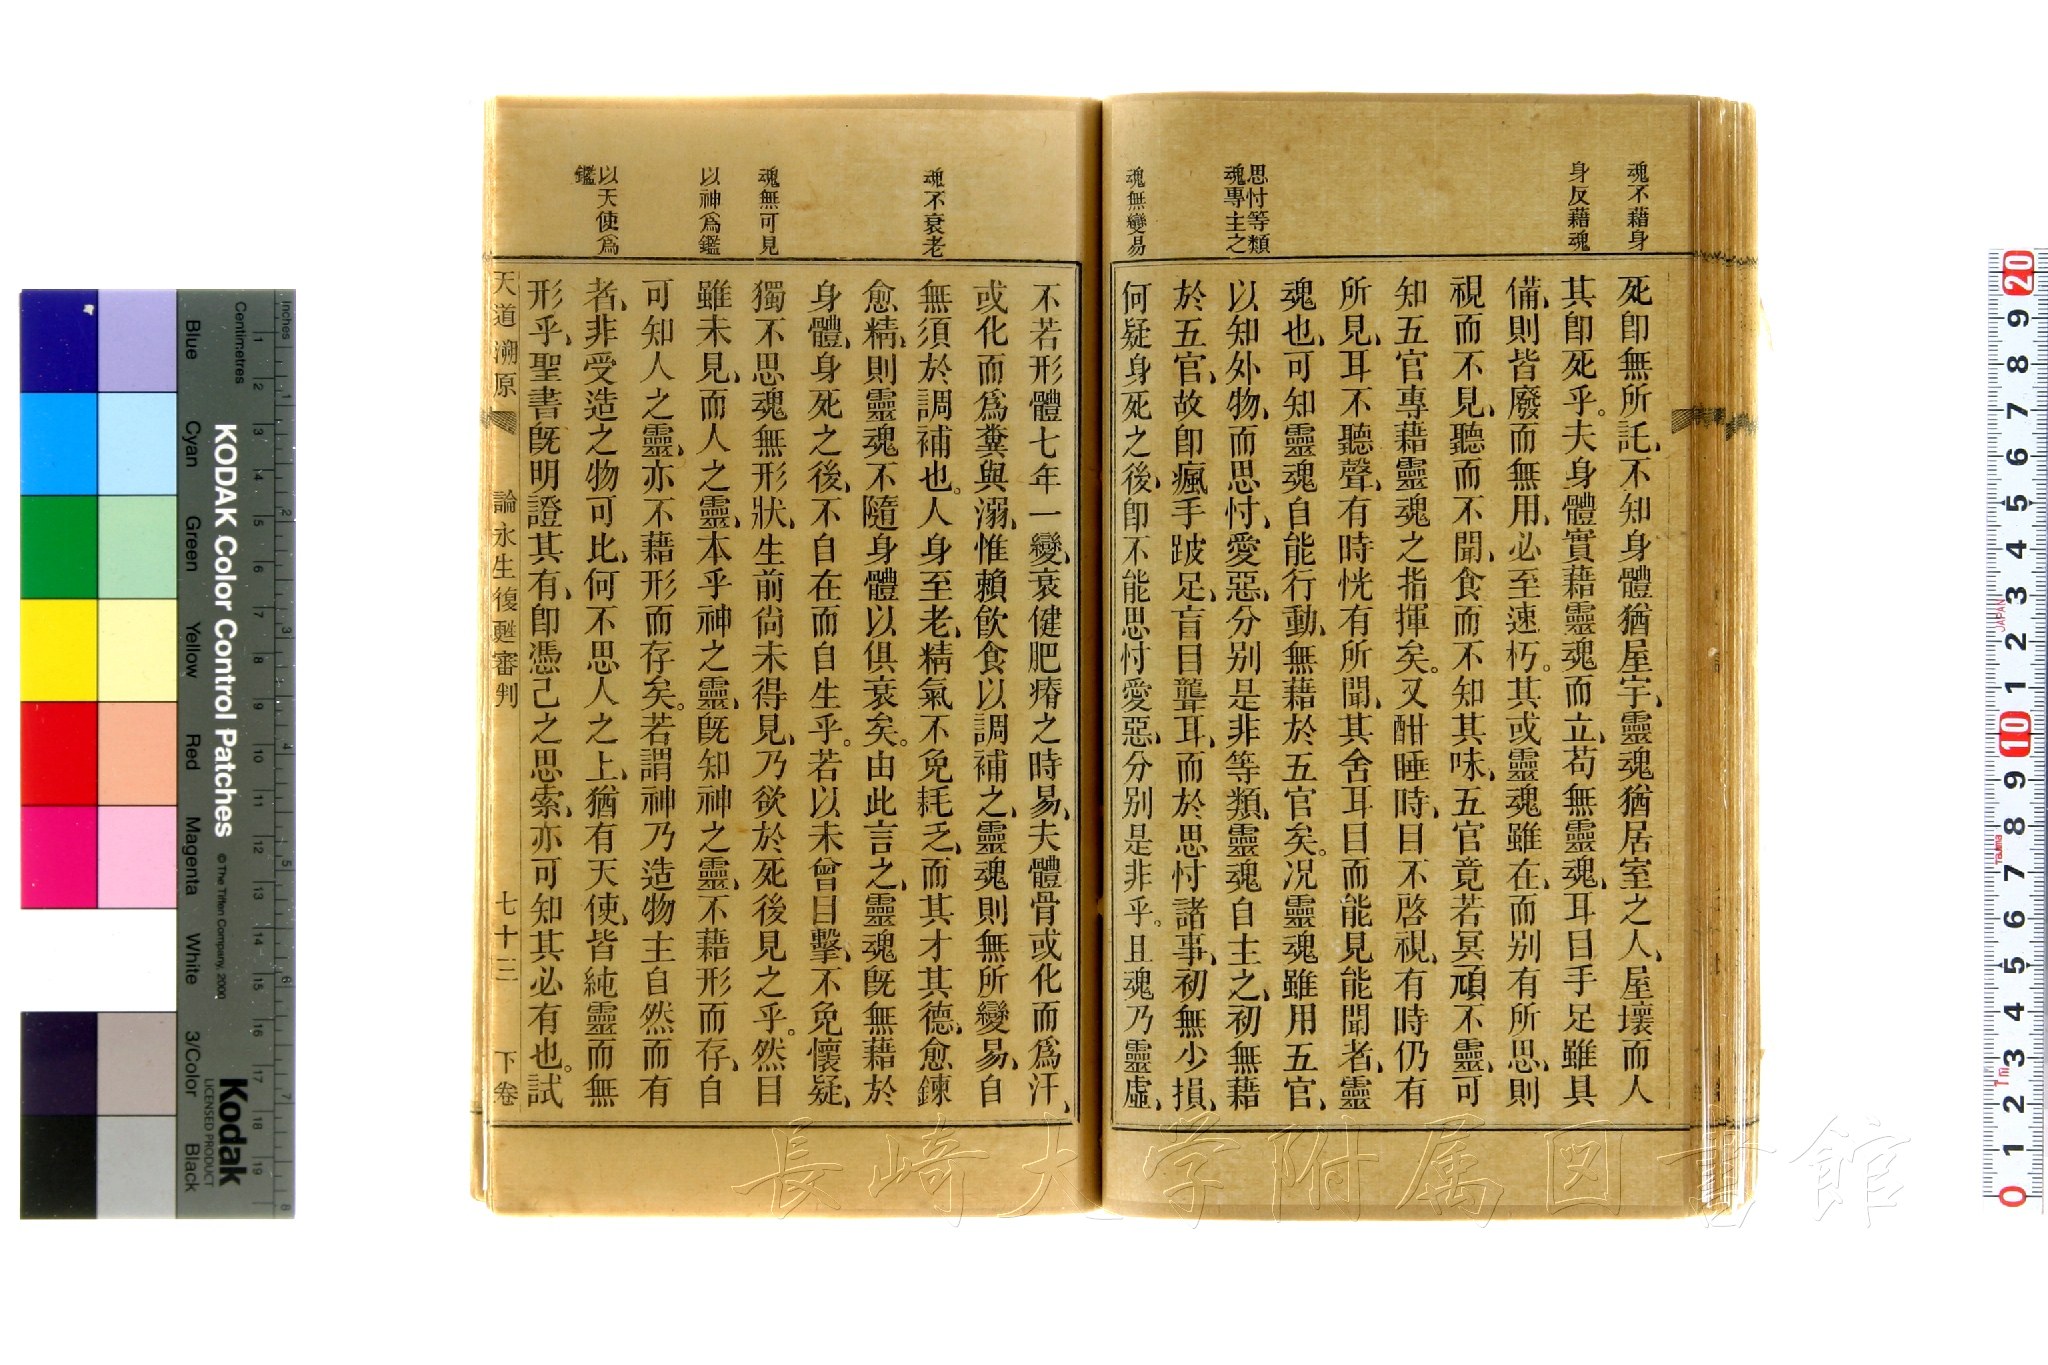 魂不藉身
身反藉魂
思忖等類
魂專主之
魂無變易
死卽無所託、不知身體猶屋宇、靈魂猶居室之人、屋壞而人
其卽死乎。夫身體實藉靈魂而立、苟無靈魂、耳目手足雖具
備、則皆廢而無用、必至速朽。其或靈魂雖在、而别有所思、則
視而不見、聽而不聞、食而不知其味、五官竟若冥頑不靈、可
知五官專藉靈魂之指揮矣。又酣睡時、目不啓視、有時仍有
所見、耳不聽聲、有時恍有所聞、其舍耳目而能見能聞者、靈
魂也、可知靈魂自能行動、無藉於五官矣。况靈魂雖用五官、
以知外物、而思忖、愛惡、分别是非等類、靈魂自主之、初無藉
於五官、故卽瘋手跛足、盲目聾耳、而於思忖諸事、初無少損、
何疑身死之後、卽不能思忖愛惡、分别是非乎。且魂乃靈虛、
魂不衰老
魂無可見
以神爲鑑
以天使爲
鑑
不若形體七年一變、衰健肥瘠之時易、夫體骨或化而爲汗、
或化而爲糞與溺、惟賴飮食以調補之、靈魂則無所變易、自
無須於調補也。人身至老、精氣不免耗乏、而其才其德、愈鍊
愈精、則靈魂不隨身體以俱衰矣。由此言之、靈魂旣無藉於
身體、身死之後、不自在而自生乎。若以未曾目擊、不免懷疑、
獨不思魂無形狀、生前尙未得見、乃欲於死後見之乎。然目
雖未見、而人之靈、本乎神之靈、旣知神之靈、不藉形而存、自
可知人之靈、亦不藉形而存矣。若謂神乃造物主自然而有
者、非受造之物可比、何不思人之上、猶有天使、皆純靈而無
形乎、聖書旣明證其有、卽憑己之思索、亦可知其必有也。試
天道溯原 論永生復甦審判 七十三 下卷
KODAK Color Control Patches
© The Tiffen Company, 2000
Kodak
LICENSED PRODUCT
Inches
Centimetres
Blue
Cyan
Green
Yellow
Red
Magenta
White
3/Color
Black
JAPAN
Tajima
長崎大学附属図書館